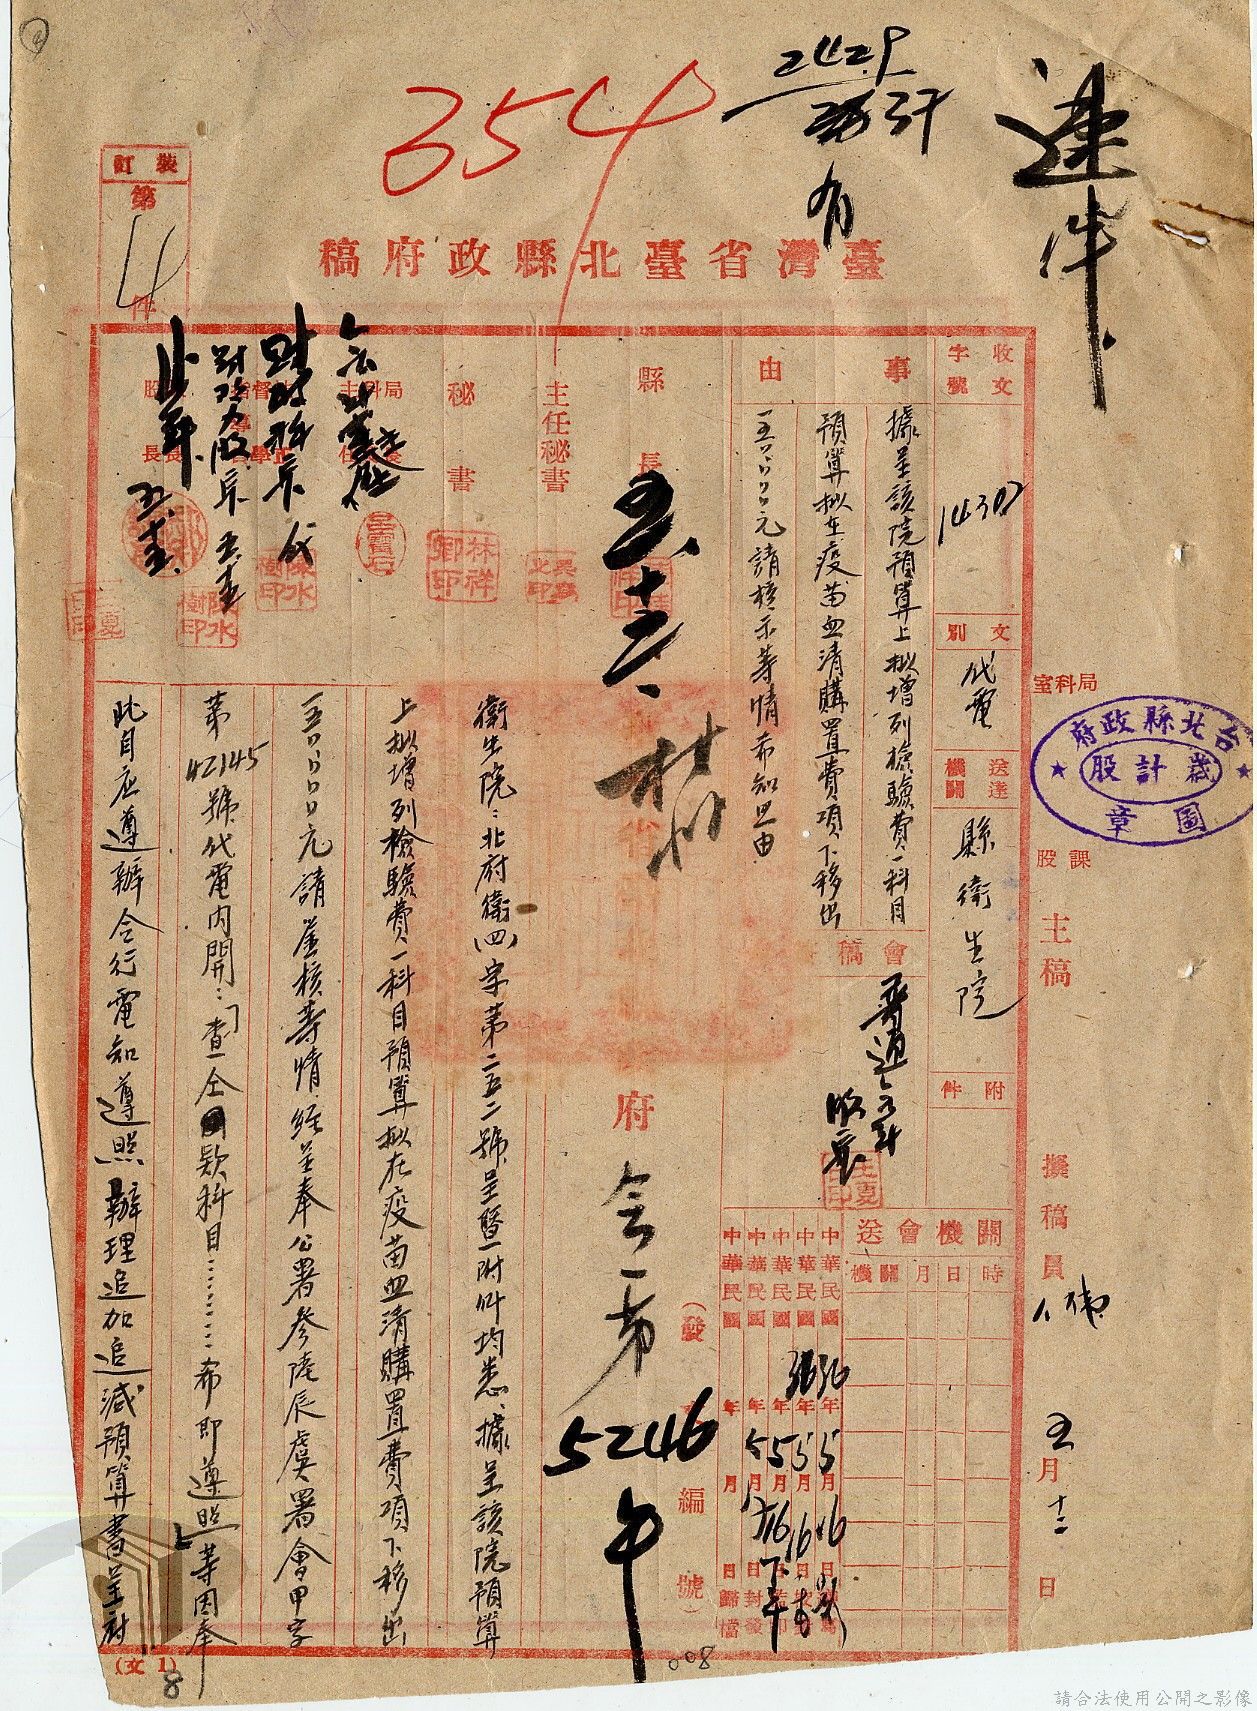 速件
2429
3637
有
354
裝訂
第
4
件
臺灣省臺北縣政府稿
收文
字號
14307
文別
代電
送達
機關
縣衛生院
附件
事
由
據呈該院預算上擬增列檢驗費一科目
預算擬在疫苗血清購置費項下移出
一五〇〇〇〇元請核示等情希知照由
會稿
縣長
主任秘書
秘書
五、十六、
林祥卿印
呂寶石
陳水樹印
陳水樹印
局科室
台北縣政府
歲計股
圖章
課股
主稿
撰稿員
五月十二日
關機會送
機關
月
日
時
中華民國36年5月16日
中華民國36年5月16日
中華民國 年5月16日
中華民國 年5月
中華民國 年 月 日歸檔
府
第
5246
(發文編號)
衛生院：北府衛(四)字第二五二號呈暨附件均悉、據呈該院預算
上擬增列檢驗費一科目預算擬在疫苗血清購置費項下移出
一五〇〇〇〇元請鑒核等情經呈奉公署參陸辰虞署會甲字
第42145號代電內開：「查全 款科目………希即遵照」等因奉
此自應遵辦合行電知遵照辦理追加追減預算書呈府
(文1)
8
008
請合法使用公開之影像